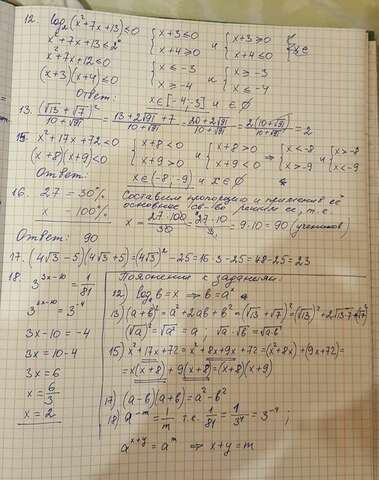 12. log₂(x²+7x+13)≤0 { x+3≤0 x+4≥0 и { x+3≥0 x+4≤0
x²+7x+13≤2⁰
x²+7x+12≤0 { x≤-3 x≥-4 и { x≥-3 x≤-4
(x+3)(x+4)≤0
Ответ: x∈[-4;-3] и ∈∅
13. (√13+√7)²/(10+√91) = (13+2√91+7)/(10+√91) = (20+2√91)/(10+√91) = 2(10+√91)/(10+√91) = 2
15 x²+17x+72<0 { x+8<0 x+9>0 и { x+8>0 x+9<0 ⇒ { x<-8 x>-9 и { x>-8 x<-9
(x+8)(x+9)<0
Ответ: x∈(-8;-9) и x∈∅
16. 27 = 30%
x - 100%
Составляем пропорцию и применив её
основное св-во решаем её, т.е.
x = 27·100/30 = 27·10/3 = 9·10=90 (учеников)
Ответ: 90
17. (4√3-5)(4√3+5)=(4√3)²-25=16·3-25=48-25=23
18. 3^(3x-10) = 1/81
3^(3x-10) = 3⁻⁴
3x-10=-4
3x=10-4
3x=6
x=6/3
x=2
Пояснения к заданиям
12) logₐb=x ⇒ b=aˣ
13) (a+b)²=a²+2ab+b² ⇒ (√13+√7)²=(√13)²+2√13·7+√7²
(√a)²=√a²=a; √a·√b=√a·b
15) x²+17x+72=x²+8x+9x+72=(x²+8x)+(9x+72)=
=x(x+8)+9(x+8)=(x+8)(x+9)
17) (a-b)(a+b)=a²-b²
18) a⁻ᵐ=1/m т.е. 1/81=1/3⁴=3⁻⁴;
aˣ⁺ʸ=aᵐ ⇒ x+y=m